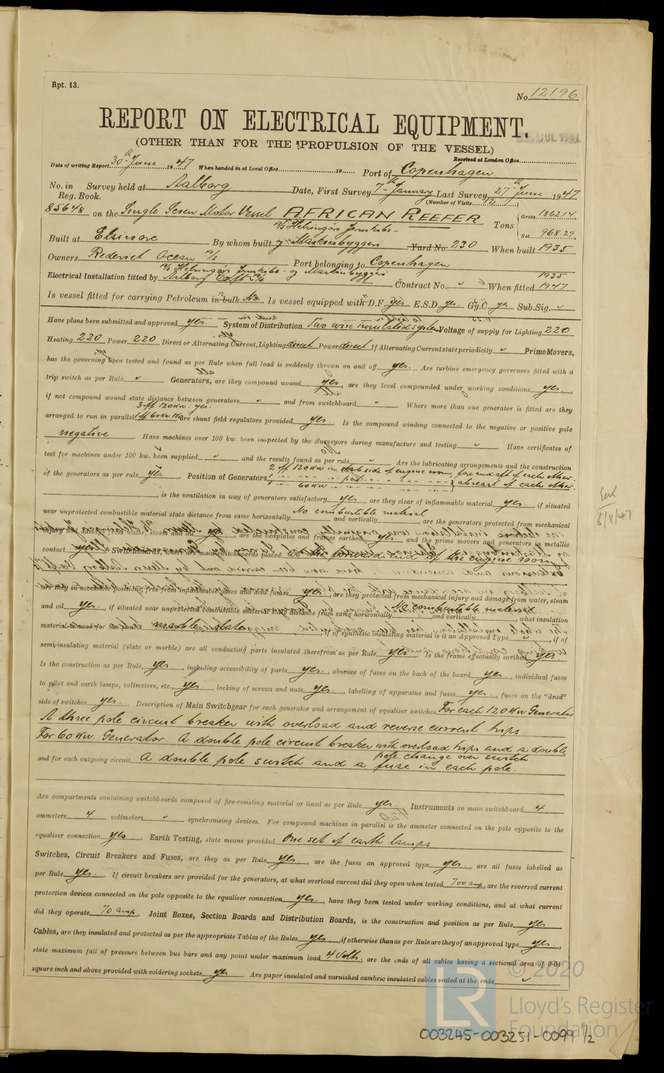 Rpt. 13.
No. 12196
REPORT ON ELECTRICAL EQUIPMENT.
(OTHER THAN FOR THE PROPULSION OF THE VESSEL)
Received at London Office
Date of writing Report 30th June 1947 When handed in at Local Office 19 Port of Copenhagen
No. in Survey held at Aalborg Date, First Survey 7th January Last Survey 27th June 1947
Reg. Book. (Number of Visits
85648 on the Single Screw Motor Vessel AFRICAN REEFER Tons Gross 1862.14
Net 968.29
A/S Helsingørs Jernskibs-
Built at Elsinore By whom built og Maskinbyggeri Yard No. 230 When built 1935
Owners Rederiet Ocean A/S Port belonging to Copenhagen
A/S Helsingørs Jernskibs- og Maskinbyggeri 1935
Electrical Installation fitted by Contract No. When fitted 1947
Is vessel fitted for carrying Petroleum in bulk No. Is vessel equipped with D.F. yes E.S.D. yes Gy.C. yes Sub.Sig.
Have plans been submitted and approved yes System of Distribution Two wire insulated system Voltage of supply for Lighting 220
Heating 220 Power 220 Direct or Alternating Current, Lighting direct Power direct If Alternating Current state periodicity Prime Movers,
has the governing been tested and found as per Rule when full load is suddenly thrown on and off yes. Are turbine emergency governors fitted with a
trip switch as per Rule Generators, are they compound wound yes, are they level compounded under working conditions yes
if not compound wound state distance between generators and from switchboard Where more than one generator is fitted are they
arranged to run in parallel are shunt field regulators provided yes Is the compound winding connected to the negative or positive pole
negative Have machines over 100 kw. been inspected by the Surveyors during manufacture and testing Have certificates of
test for machines under 100 kw. been supplied and the results found as per rule Are the lubricating arrangements and the construction
of the generators as per rule yes Position of Generators
60 KW abreast of each other
, is the ventilation in way of generators satisfactory yes are they clear of inflammable material yes, if situated
near unprotected combustible material state distance from same horizontally No combustible material and vertically are the generators protected from mechanical
are the bedplates and frames earthed yes and the prime movers and generators in metallic
contact yes
are they protected from mechanical injury and damage from water, steam
and oil yes, if situated near unprotected combustible material state distance from same horizontally No combustible material and vertically, what insulation
if of synthetic insulating material is it an Approved Type, if of
semi-insulating material (slate or marble) are all conducting parts insulated therefrom as per Rule yes Is the frame effectually earthed yes
Is the construction as per Rule yes, including accessibility of parts yes, absence of fuses on the back of the board yes, individual fuses
to pilot and earth lamps, voltmeters, etc. yes locking of screws and nuts yes, labelling of apparatus and fuses yes, fuses on the "dead"
side of switches yes Description of Main Switchgear for each generator and arrangement of equaliser switches For each 120 KW Generator
A three pole circuit breaker with overload and reverse current trips
For 60 KW. Generator. A double pole circuit breaker with overload trips and a double
pole change over switch
and for each outgoing circuit A double pole switch and a fuse in each pole.
Are compartments containing switchboards composed of fire-resisting material or lined as per Rule yes Instruments on main switchboard 4
ammeters 4 voltmeters synchronising devices. For compound machines in parallel is the ammeter connected on the pole opposite to the
equaliser connection yes Earth Testing, state means provided One set of earth lamps
Switches, Circuit Breakers and Fuses, are they as per Rule yes, are the fuses an approved type yes, are all fuses labelled as
per Rule yes If circuit breakers are provided for the generators, at what overload current did they open when tested 700 amp, are the reversed current
protection devices connected on the pole opposite to the equaliser connection yes, have they been tested under working conditions, and at what current
did they operate 70 amp. Joint Boxes, Section Boards and Distribution Boards, is the construction and position as per Rule yes
Cables, are they insulated and protected as per the appropriate Tables of the Rules yes, if otherwise than as per Rule are they of an approved type yes
state maximum fall of pressure between bus bars and any point under maximum load 4 Volts, are the ends of all cables having a sectional area of 0.04
square inch and above provided with soldering sockets yes Are paper insulated and varnished cambric insulated cables sealed at the ends
© 2020
LR
Lloyd's Register
Foundation
003245-003251-0099 1/2